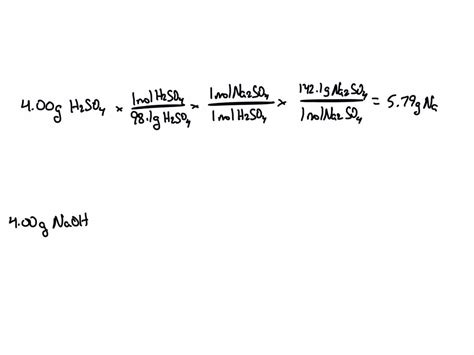 4.00g H₂SO₄ × 1 mol H₂SO₄ / 98.1g H₂SO₄ × 1 mol Na₂SO₄ / 1 mol H₂SO₄ × 142.1g Na₂SO₄ / 1 mol Na₂SO₄ = 5.79g Na
4.00g NaOH